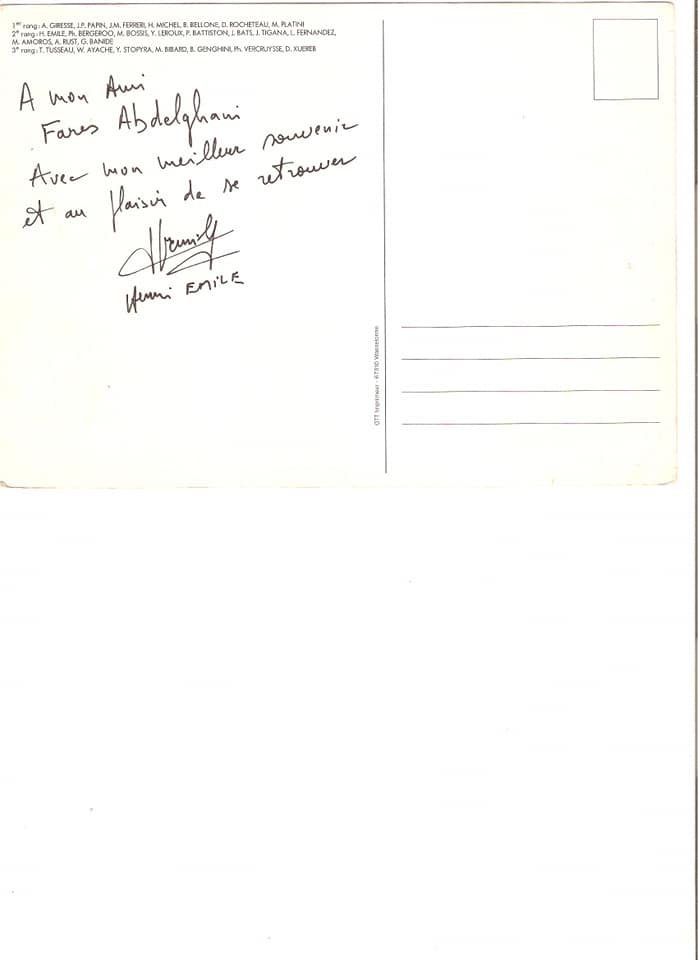 1er rang : A. GIRESSE, J.P. PAPIN, J.M. FERRERI, H. MICHEL, B. BELLONE, D. ROCHETEAU, M. PLATINI
2e rang : H. EMILE, Ph. BERGEROO, M. BOSSIS, Y. LEROUX, P. BATTISTON, J. BATS, J. TIGANA, L. FERNANDEZ,
M. AMOROS, A. RUST, G. BANIDE
3e rang : T. TUSSEAU, W. AYACHE, Y. STOPYRA, M. BIBARD, B. GENGHINI, Ph. VERCRUYSSE, D. XUEREB
A mon Ami
Fares Abdelghani
Avec mon meilleur souvenir
et au plaisir de se retrouver
Henri EMILE
OTT Imprimeur - 67310 Wasselonne